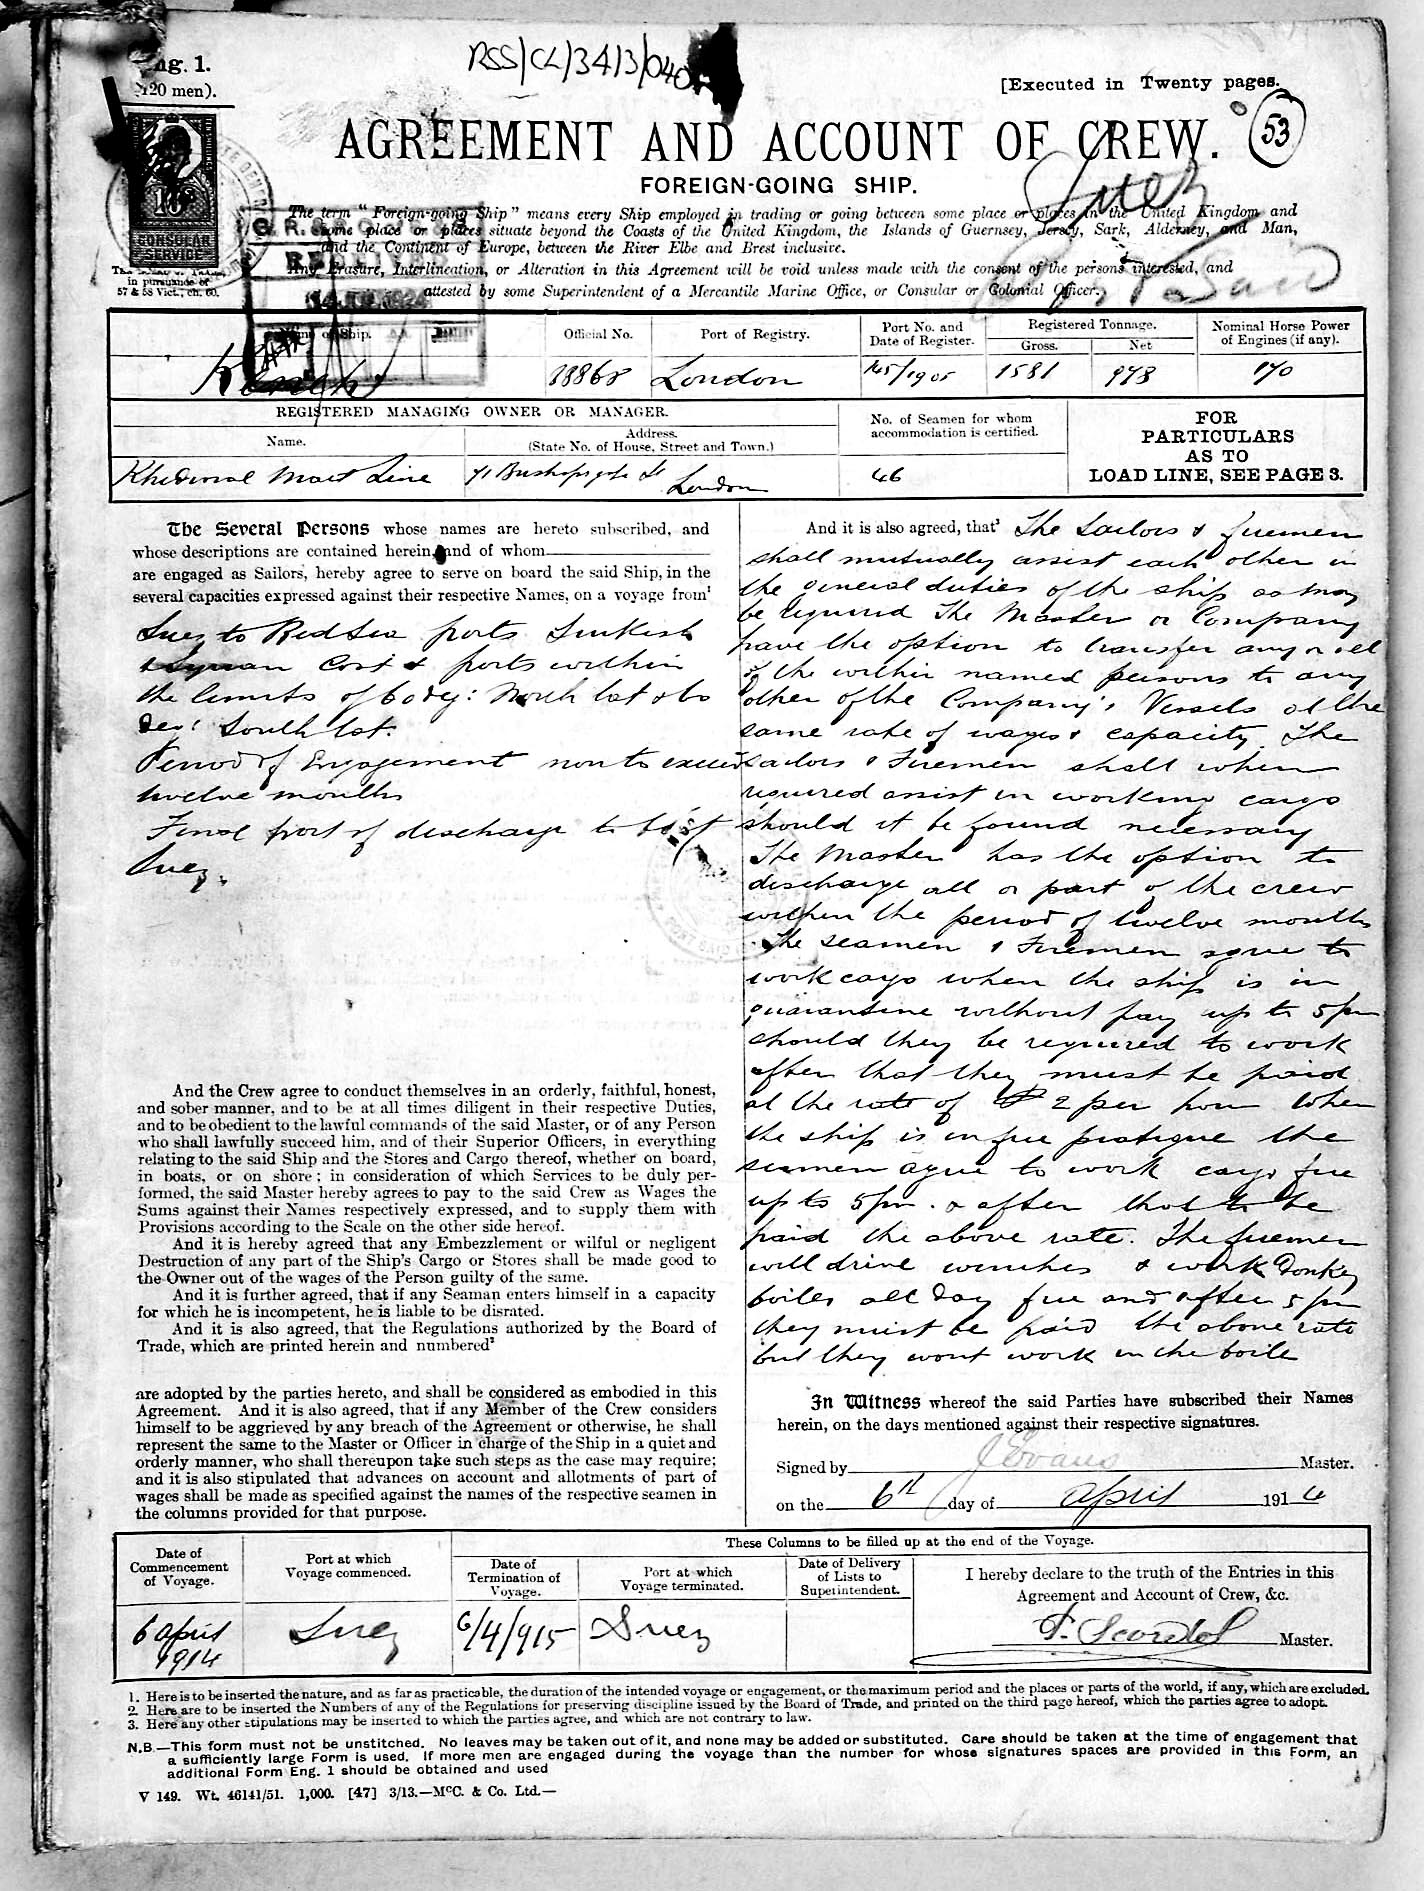 RSS/CL/3413/040
ng. 1.
120 men).
[Executed in Twenty pages.
53
AGREEMENT AND ACCOUNT OF CREW.
FOREIGN-GOING SHIP.
Suez
The term "Foreign-going Ship" means every Ship employed in trading or going between some place or places in the United Kingdom and
some place or places situate beyond the Coasts of the United Kingdom, the Islands of Guernsey, Jersey, Sark, Alderney, and Man,
and the Continent of Europe, between the River Elbe and Brest inclusive.
Any Erasure, Interlineation, or Alteration in this Agreement will be void unless made with the consent of the persons interested, and
attested by some Superintendent of a Mercantile Marine Office, or Consular or Colonial Officer.
CONSULAR
SERVICE
in pursuance of
57 & 58 Vict., ch. 60.
of Ship.
Official No.
Port of Registry.
Port No. and
Date of Register.
Registered Tonnage.
Gross.
Net
Nominal Horse Power
of Engines (if any).
London
1581
170
REGISTERED MANAGING OWNER OR MANAGER.
Name.
Address.
(State No. of House, Street and Town.)
No. of Seamen for whom
accommodation is certified.
FOR
PARTICULARS
AS TO
LOAD LINE, SEE PAGE 3.
Khedivial Mail Line
London
46
The Several Persons whose names are hereto subscribed, and
whose descriptions are contained herein, and of whom
are engaged as Sailors, hereby agree to serve on board the said Ship, in the
several capacities expressed against their respective Names, on a voyage from¹
Suez to Red Sea ports Turkish
& Syrian Cost & ports within
the limits of 60 deg: North lat & 60
Deg: South lat.
Period of Engagement not to exceed
twelve months
Final port of discharge to be at
Suez.
And the Crew agree to conduct themselves in an orderly, faithful, honest,
and sober manner, and to be at all times diligent in their respective Duties,
and to be obedient to the lawful commands of the said Master, or of any Person
who shall lawfully succeed him, and of their Superior Officers, in everything
relating to the said Ship and the Stores and Cargo thereof, whether on board,
in boats, or on shore; in consideration of which Services to be duly per-
formed, the said Master hereby agrees to pay to the said Crew as Wages the
Sums against their Names respectively expressed, and to supply them with
Provisions according to the Scale on the other side hereof.
And it is hereby agreed that any Embezzlement or wilful or negligent
Destruction of any part of the Ship's Cargo or Stores shall be made good to
the Owner out of the wages of the Person guilty of the same.
And it is further agreed, that if any Seaman enters himself in a capacity
for which he is incompetent, he is liable to be disrated.
And it is also agreed, that the Regulations authorized by the Board of
Trade, which are printed herein and numbered²
are adopted by the parties hereto, and shall be considered as embodied in this
Agreement. And it is also agreed, that if any Member of the Crew considers
himself to be aggrieved by any breach of the Agreement or otherwise, he shall
represent the same to the Master or Officer in charge of the Ship in a quiet and
orderly manner, who shall thereupon take such steps as the case may require;
and it is also stipulated that advances on account and allotments of part of
wages shall be made as specified against the names of the respective seamen in
the columns provided for that purpose.
And it is also agreed, that³ The Sailors & firemen
shall mutually assist each other in
the general duties of the ship as may
be required The Master or Company
have the option to transfer any or all
of the within named persons to any
other of the Company's Vessels at the
same rate of wages & capacity. The
Sailors & Firemen shall when
required assist in working cargo
should it be found necessary
The Master has the option to
discharge all or part of the crew
within the period of twelve months
The seamen & Firemen agree to
work cargo when the ship is in
quarantine without pay up to 5 pm
should they be required to work
after that they must be paid
at the rate of 2 per hour When
the ship is in free pratique the
seamen agree to work cargo free
up to 5 pm. & after that to be
paid the above rate. The firemen
will drive winches & work Donkey
boiler all day free and after 5 pm
they must be paid the above rate
but they wont work in the boile
In Witness whereof the said Parties have subscribed their Names
herein, on the days mentioned against their respective signatures.
Signed by J Evans Master.
on the 6th day of April 1914
Date of
Commencement
of Voyage.
Port at which
Voyage commenced.
These Columns to be filled up at the end of the Voyage.
Date of
Termination of
Voyage.
Port at which
Voyage terminated.
Date of Delivery
of Lists to
Superintendent.
I hereby declare to the truth of the Entries in this
Agreement and Account of Crew, &c.
Master.
6 April
1914
Suez
6/4/915
Suez
1. Here is to be inserted the nature, and as far as practicable, the duration of the intended voyage or engagement, or the maximum period and the places or parts of the world, if any, which are excluded.
2. Here are to be inserted the Numbers of any of the Regulations for preserving discipline issued by the Board of Trade, and printed on the third page hereof, which the parties agree to adopt.
3. Here any other stipulations may be inserted to which the parties agree, and which are not contrary to law.
N.B.—This form must not be unstitched. No leaves may be taken out of it, and none may be added or substituted. Care should be taken at the time of engagement that
a sufficiently large Form is used. If more men are engaged during the voyage than the number for whose signatures spaces are provided in this Form, an
additional Form Eng. 1 should be obtained and used
V 149. Wt. 46141/51. 1,000. [47] 3/13.—McC. & Co. Ltd.—